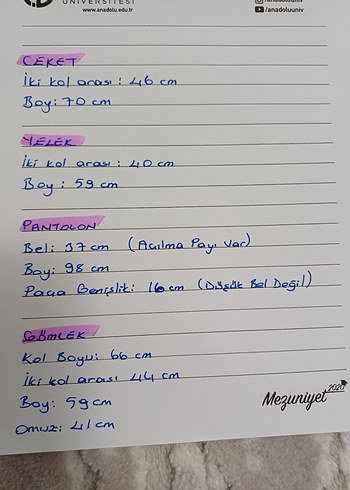 ÜNİVERSİTESİ
www.anadolu.edu.tr
/anadoluuniv
CEKET
İki kol arası: 46 cm
Boy: 70 cm
YELEK
İki kol arası: 40 cm
Boy: 59 cm
PANTOLON
Bel: 37cm (Açılma Payı Var)
Boy: 98 cm
Paça Genişlik: 16 cm (Düşük Bel Değil)
GÖMLEK
Kol Boyu: 66 cm
İki kol arası 44 cm
Boy: 59cm
Omuz: 41cm
Mezuniyet 2020